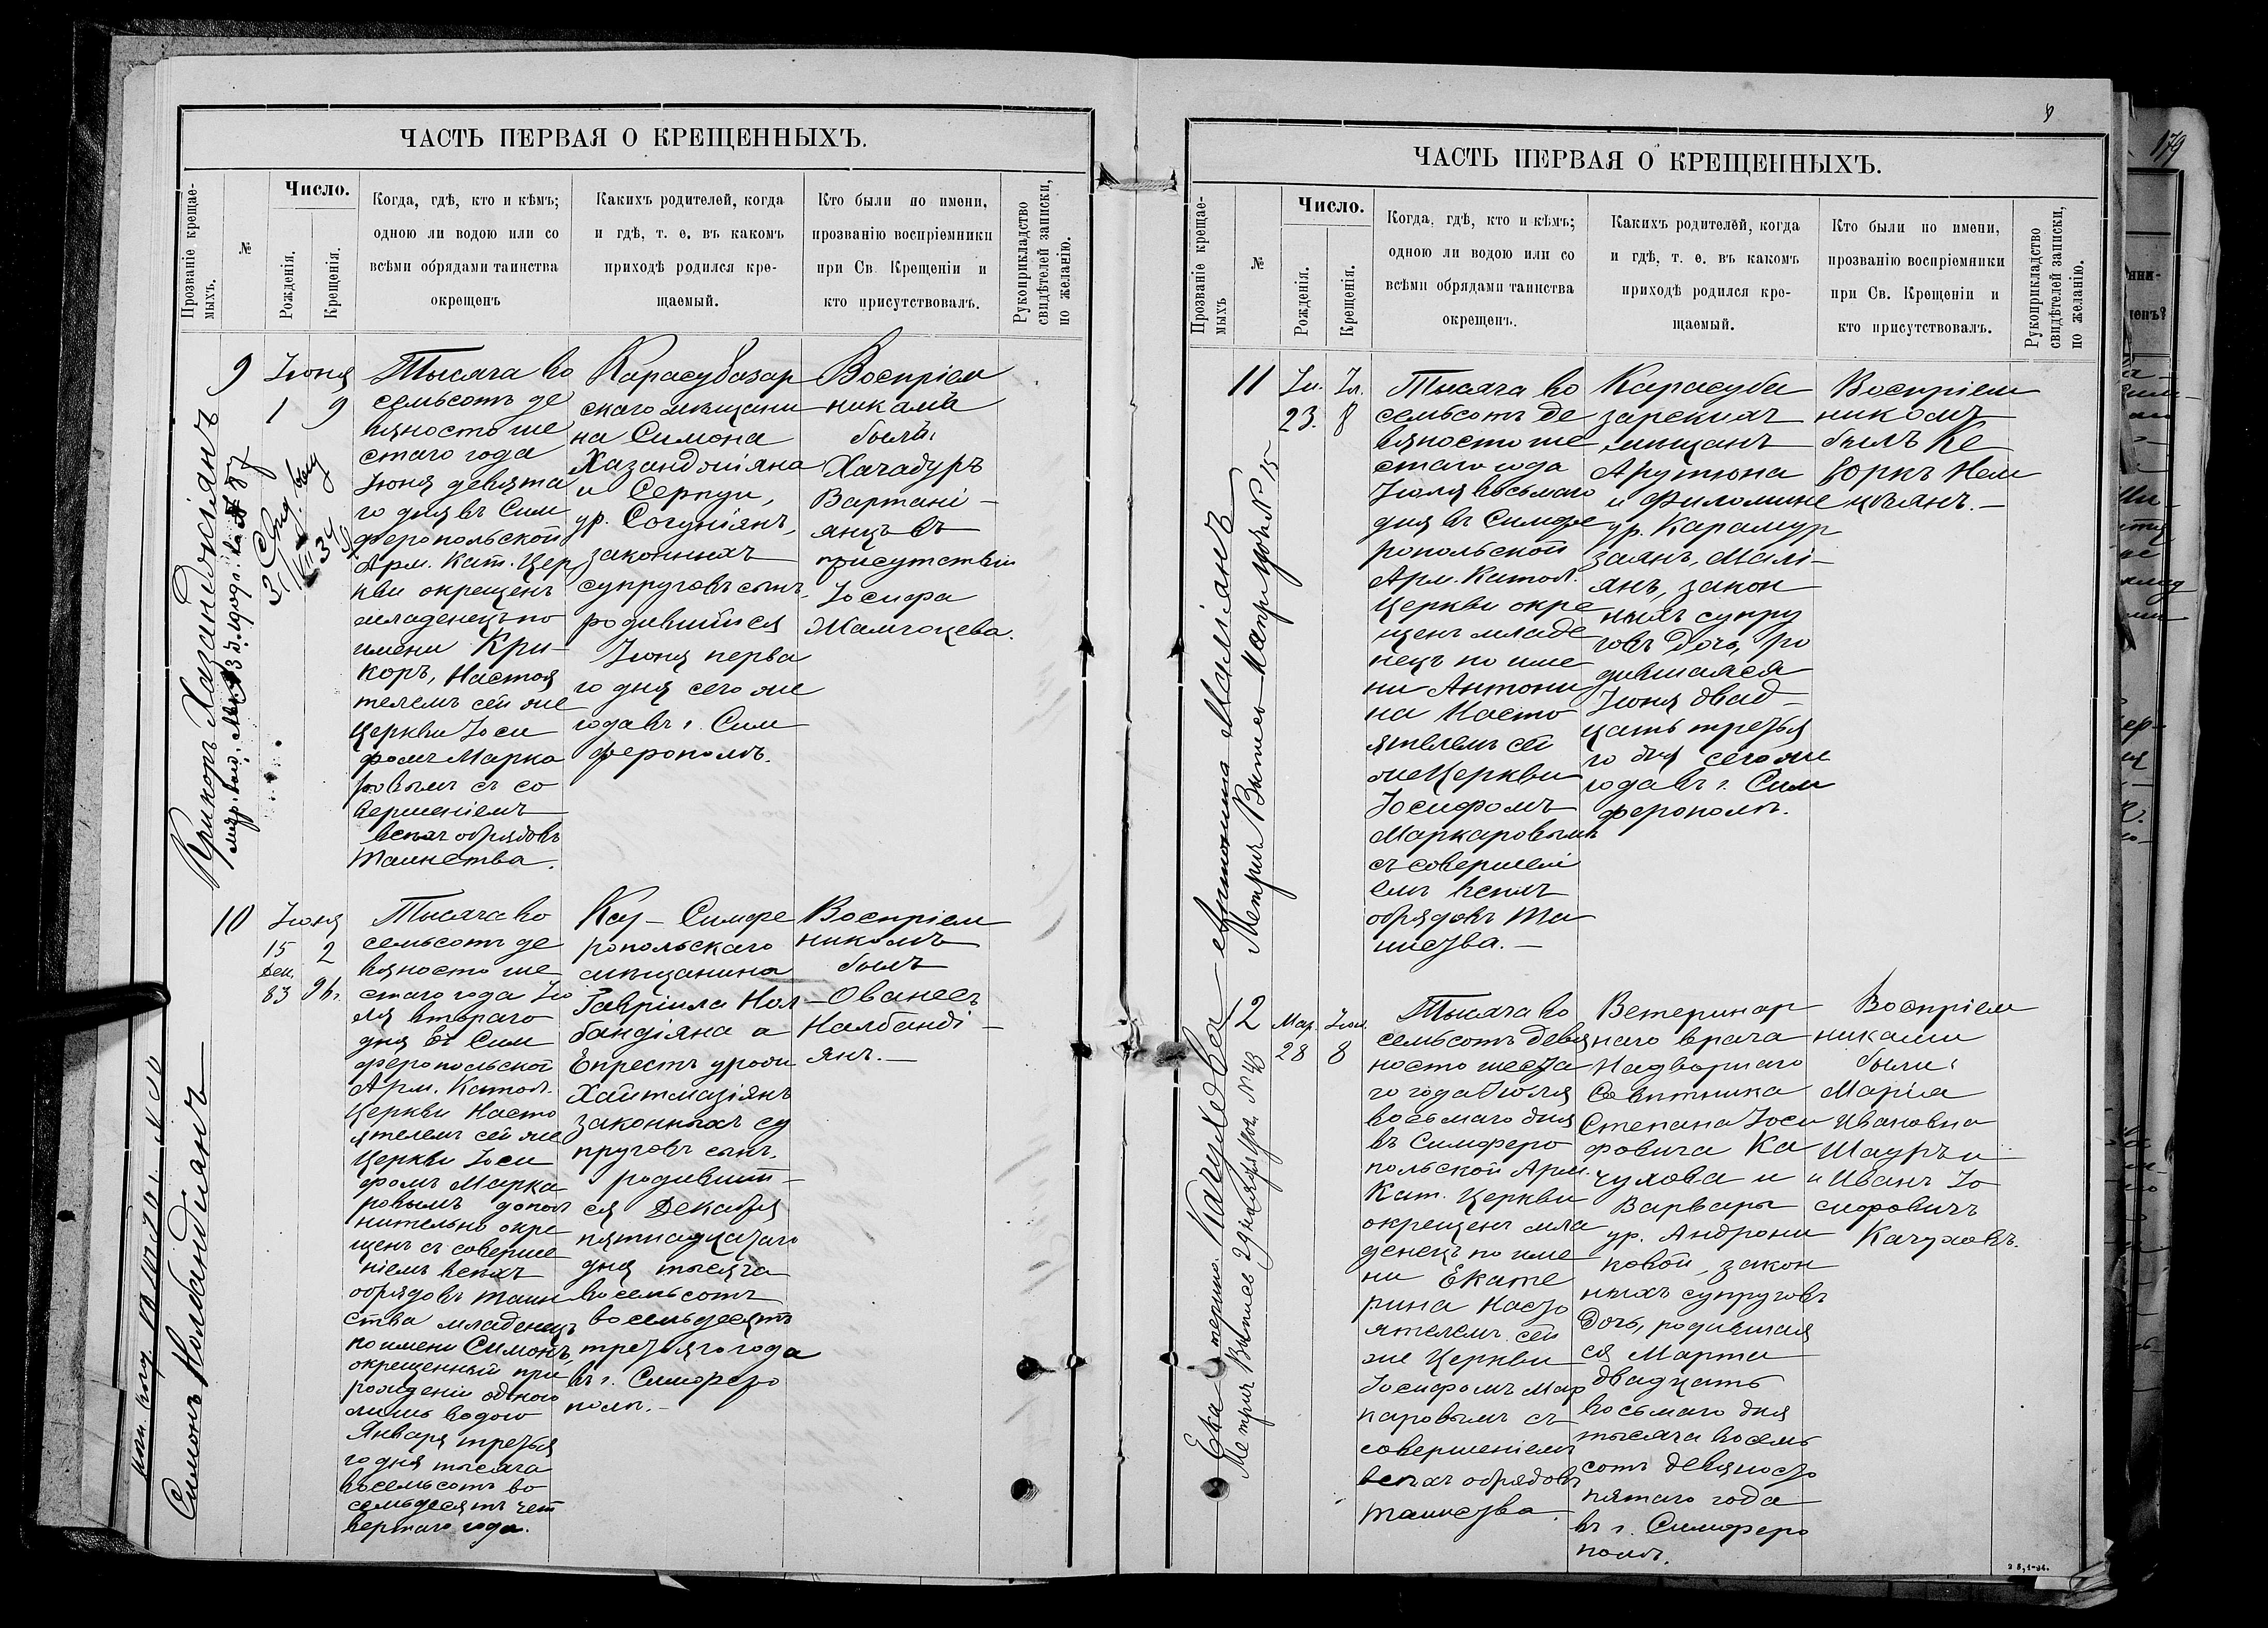 ЧАСТЬ ПЕРВАЯ О КРЕЩЕННЫХЪ.
Прозваніе крещае-
мыхъ.
№
Число.
Рожденія.
Крещенія.
Когда, гдѣ, кто и кѣмъ;
одною ли водою или со
всѣми обрядами таинства
окрещенъ
Какихъ родителей, когда
и гдѣ, т. е. въ какомъ
приходѣ родился кре-
щаемый.
Кто были по имени,
прозванію воспріемники
при Св. Крещеніи и
кто присутствовалъ.
Рукоприкладство
свидѣтелей записки,
по желанію.
Крикоръ Хазанджіянъ
9
Іюня
1 9
31
34
Тысяча во
семьсотъ де
вяносто ше
стаго года
Іюня девята
го дня въ Сим
феропольской
Арм. Кат. Цер
кви окрещенъ
младенецъ по
имени Кри-
коръ, Настоя
телемъ сей же
Церкви Іоси
фомъ Марка
ровымъ съ со
вершеніемъ
всѣхъ обрядовъ
Таинства.
Карасубазар
скаго мѣщани
на Симона
Хазанджіяна
и Серпуи,
ур. Согуніянъ,
законныхъ
супруговъ сынъ,
родившійся
Іюня перва
го дня сего же
года въ г. Сим
ферополѣ.
Воспріем
никами
были:
Хачадуръ
Вартані-
янцъ въ
присутствіи
Іосифа
Жамгоцева.
Симонъ Налбандіянъ
10
Іюня
15 2
Дек.
83 96 г.
Тысяча во
семьсотъ де
вяносто ше
стаго года Ію
ля втораго
дня въ Сим
феропольской
Арм. Катол.
Церкви Насто
ятелемъ сей же
Церкви Іоси
фомъ Марка
ровымъ допол
нительно окре
щенъ съ соверше
ніемъ всѣхъ
обрядовъ таин
ства младенецъ
по имени Симонъ,
окрещенный при
рожденіи одною
лишь водою
Января третья
го дня тысяча
восемьсотъ во
семьдесятъ чет
вертаго года.
Симфе
ропольскаго
мѣщанина
Гавріила Нал
бандіяна и
Епрестъ урож
Хайтмазіянъ
законныхъ су
пруговъ сынъ,
родившій-
ся Декабря
пятнадцатаго
дня тысяча
восемьсотъ
восемьдесятъ
третьяго года
въ г. Симферо
полѣ.-
Воспріем
никомъ
былъ
Ованесъ
Налбанді-
янъ.-
ЧАСТЬ ПЕРВАЯ О КРЕЩЕННЫХЪ.
179
Прозваніе крещае-
мыхъ
№
Число.
Рожденія.
Крещенія.
Когда, гдѣ, кто и кѣмъ;
одною ли водою или со
всѣми обрядами таинства
окрещенъ.
Какихъ родителей, когда
и гдѣ, т. е. въ какомъ
приходѣ родился кре-
щаемый.
Кто были по имени,
прозванію воспріемники
при Св. Крещеніи и
кто присутствовалъ.
Рукоприкладство
свидѣтелей записки,
по желанію.
Антонина Маліянъ
11
Іюн. Іл.
23. 8
Тысяча во
семьсотъ де
вяносто ше
стаго года
Іюля восьмаго
дня въ Симфе
ропольской
Арм. Катол.
Церкви окре
щенъ младе
нецъ по име
ни Антони
на Насто
ятелемъ сей
же Церкви
Іосифомъ
Маркаровымъ
съ совершені
емъ всѣхъ
обрядовъ Та
инства.-
Карасуба
зарскихъ
мѣщанъ
Арутюна
и Филомине
ур. Карамур
заянъ, Малі-
янъ, закон
ныхъ супру
говъ дочь, ро
дившаяся
Іюня двад-
цать третья
го дня сего же
года въ г. Сим
ферополѣ.
Воспріем
никомъ
былъ Ке
воркъ Нем
цѣянъ.-
Екатерина Качухова
12
Мар. Іюл.
28 8
Тысяча во
семьсотъ девя
носто шеста
го года Іюля
восьмаго дня
въ Симферо
польской Арм.
Кат. Церкви
окрещенъ мла
денецъ по име
ни Екате
рина Насто
ятелемъ сей
же Церкви
Іосифомъ Мар
каровымъ съ
совершеніемъ
всѣхъ обрядовъ
таинства.
Ветеринар
наго врача
Надворнаго
Совѣтника
Степана Іоси
фовича Ка
чухова и
Варвары
ур. Андрони
ковой, закон
ныхъ супруговъ
дочь, родившая
ся Марта
двадцать
восьмаго дня
тысяча восемь
сотъ девяносто
пятаго года
въ г. Симферо
полѣ.
Воспріем
никами
были:
Марія
Ивановна
Шауръ и
и Иванъ Іо
сифовичъ
Качуховъ.